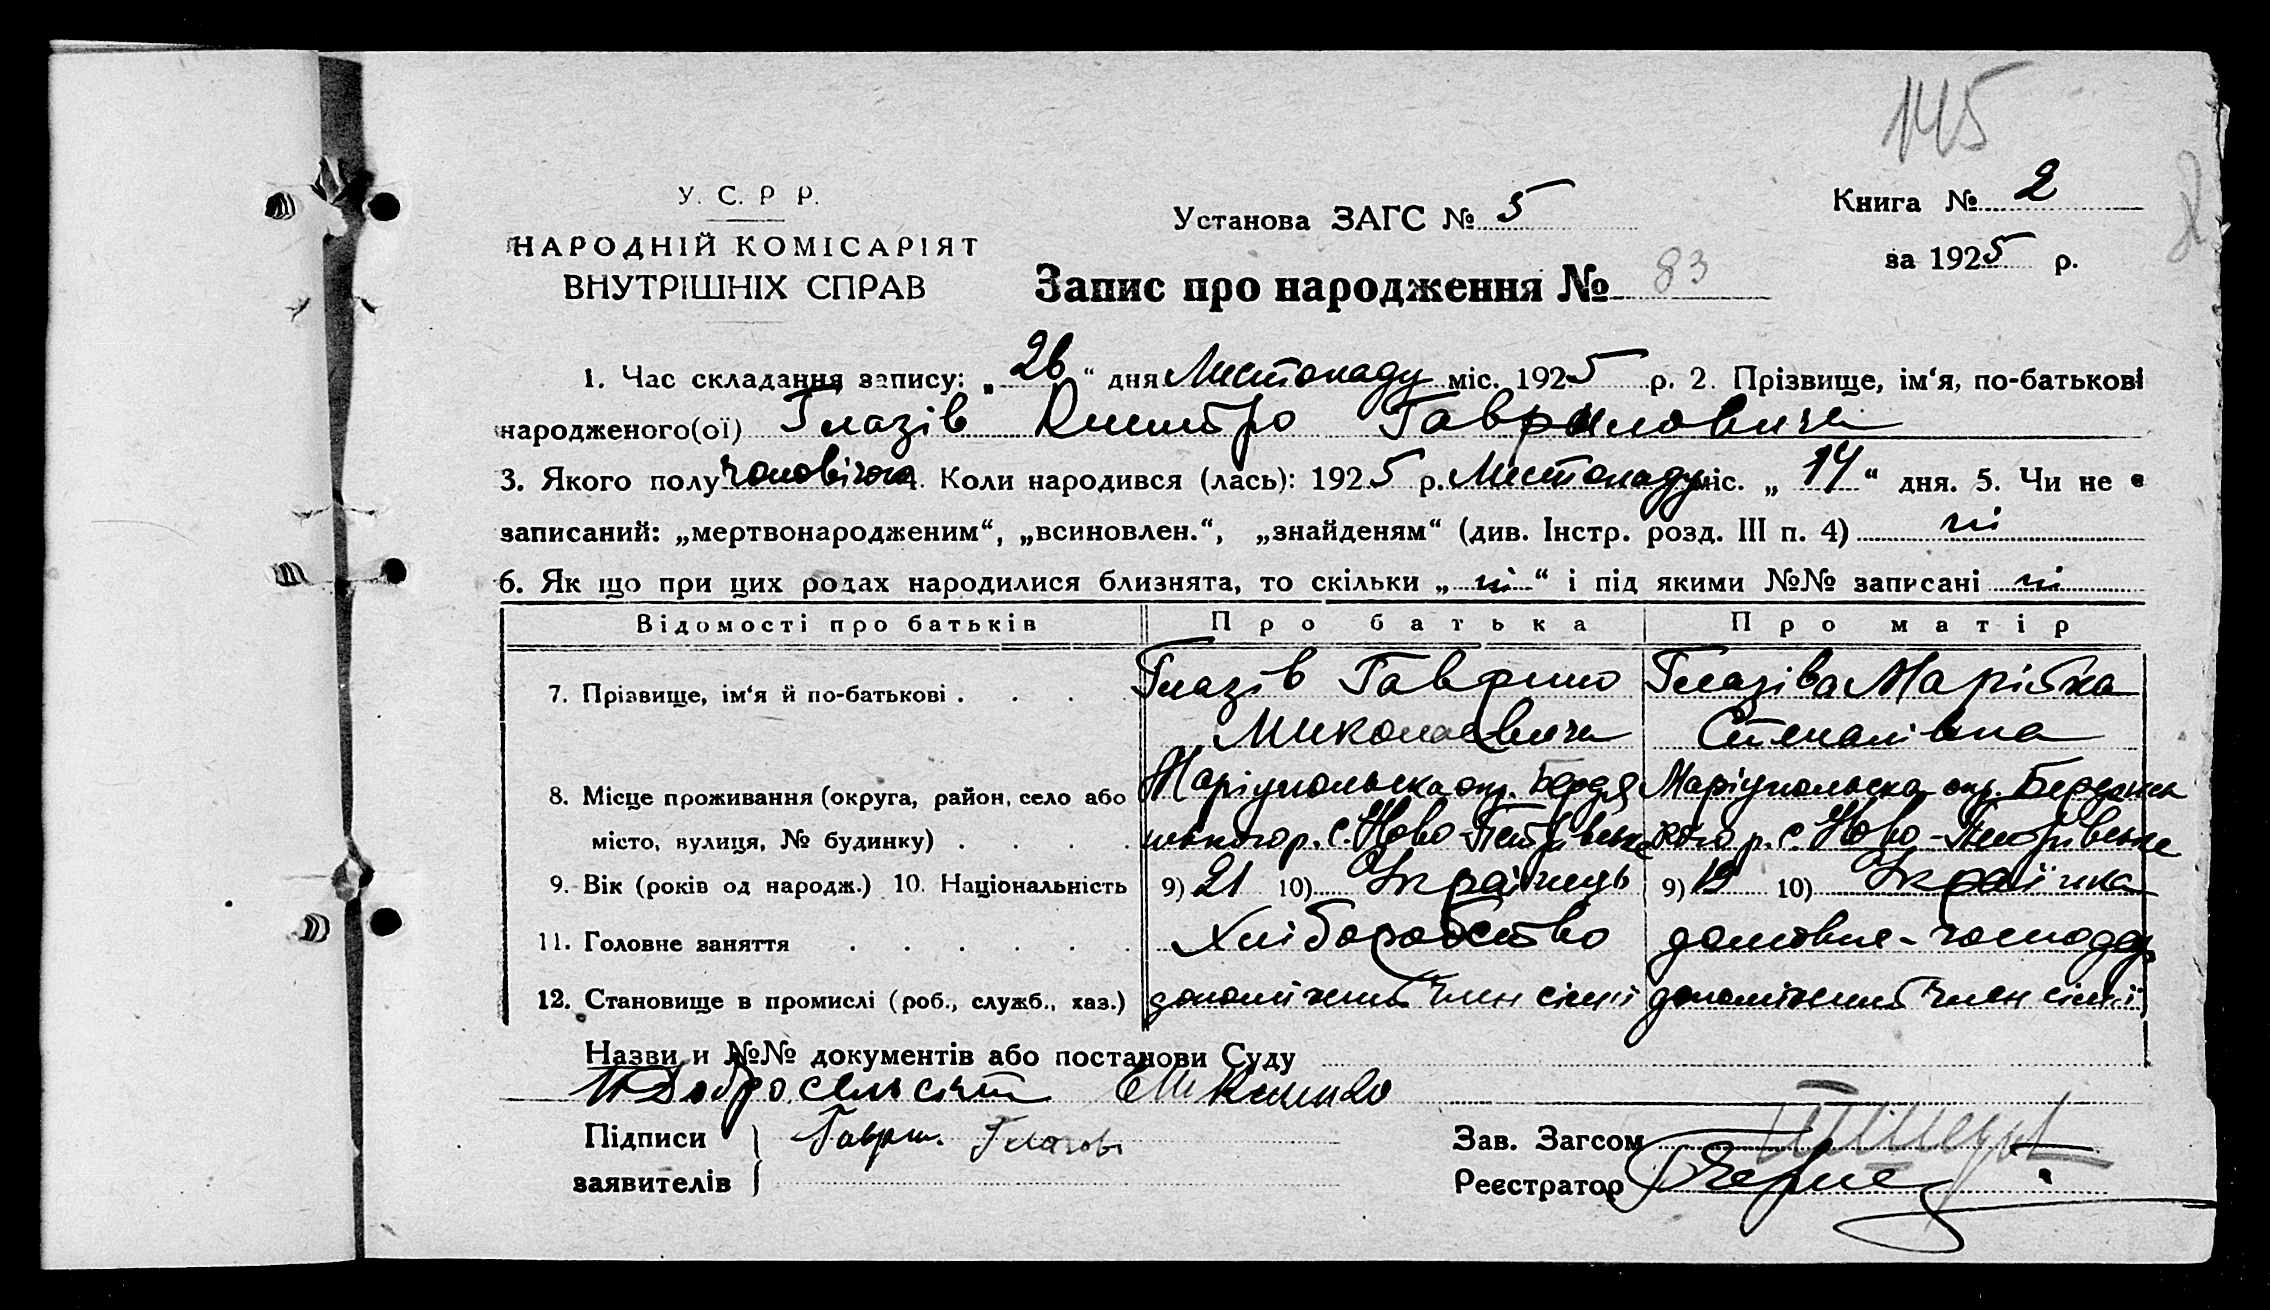 145
У. С. Р Р.
Установа ЗАГС № 5
Книга № 2
НАРОДНІЙ КОМІСАРІЯТ
ВНУТРІШНІХ СПРАВ
за 1925 р.
Запис про народження № 83
1. Час складання запису: „ 26 “ дня Листопаду міс. 1925 р. 2. Прізвище, ім‘я, по-батькові
народженого(ої) Глазів Дмитро Гаврилович
3. Якого полу чоловічого. Коли народився (лась): 1925 р. Листопаду міс. „ 14 “ дня. 5. Чи не є
записаний: „мертвонародженим“, „всиновлен.“, „знайденям“ (див. Інстр. розд. III п. 4) ні
6. Як що при цих родах народилися близнята, то скільки „ ні “ і під якими №№ записані ні
Відомості про батьків Про батька Про матір
7. Прізвище, ім‘я й по-батькові . . . Глазів Гаврило Глазіва Марійка
Миколаєвич Степанівна
8. Місце проживання (округа, район, село або Маріупольска окр. Бердя Маріупольска окр. Бердянсь
місто, вулиця, № будинку) . . . . нського р. с. Ново-Петрівське кого р. с. Ново-Петрівське
9. Вік (років од народж.) 10. Національність 9) 21 10) Українець 9) 19 10) Українка
11. Головне заняття . . . . . . Хліборобство домовне-господар.
12. Становище в промислі (роб., служб., хаз.) допоміжний член сімʼї допоміжний член сімʼї
Назви и №№ документів або постанови Суду
Підписи Гаврил Глазов
Зав. Загсом
заявителів
Реєстратор